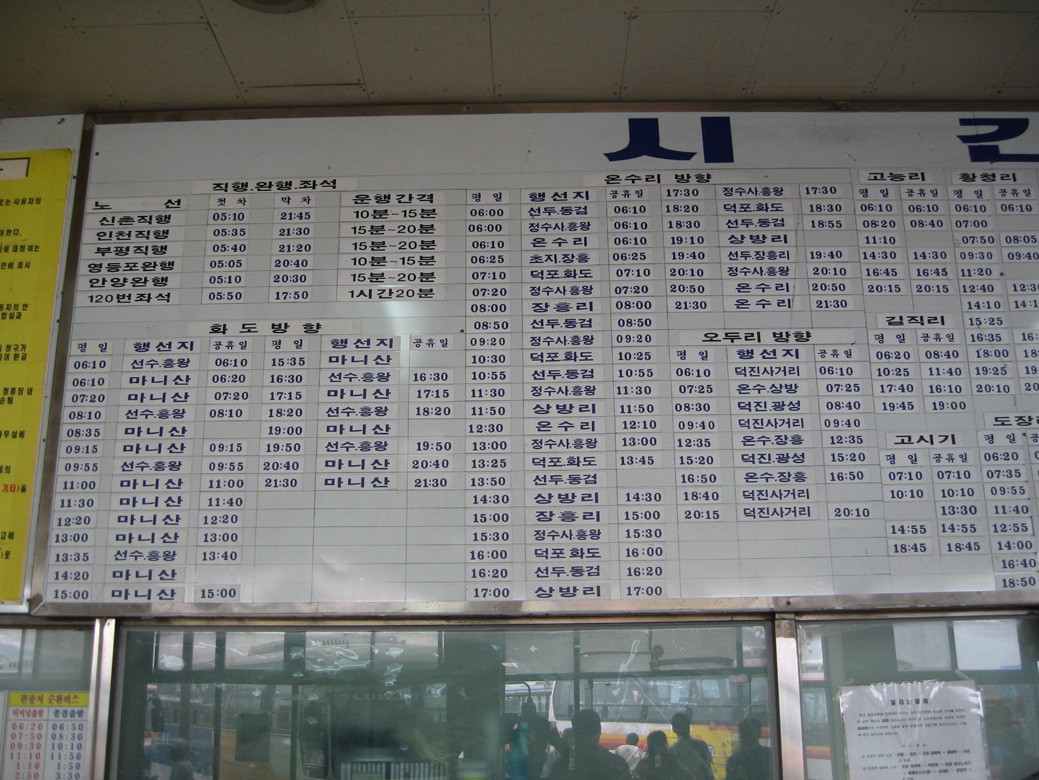 시 간
직행.완행.좌석
노 선 첫 차 막 차 운행간격
신촌직행 05:10 21:45 10분~15분
인천직행 05:35 21:30 15분~20분
부평직행 05:40 21:20 15분~20분
영등포완행 05:05 20:40 10분~15분
안양완행 05:10 20:30 15분~20분
120번좌석 05:50 17:50 1시간20분
화 도 방 향
평 일 행선지 공휴일 평 일 행선지 공휴일
06:10 선수.흥왕 06:10 15:35 마니산
06:10 마니산 06:20 16:30 선수.흥왕 16:30
07:20 마니산 07:20 17:15 마니산 17:15
08:10 선수.흥왕 08:10 18:20 선수.흥왕 18:20
08:35 마니산 19:00 마니산
09:15 마니산 09:15 19:50 선수.흥왕 19:50
09:55 선수.흥왕 09:55 20:40 마니산 20:40
11:00 마니산 11:00 21:30 마니산 21:30
11:30 마니산 11:40
12:20 마니산 12:20
13:00 마니산 13:00
13:35 선수.흥왕 13:40
14:20 마니산
15:00 마니산 15:00
온수리 방향
평 일 행선지 공휴일 17:30 정수사.흥왕 17:30
06:00 선두.동검 06:10 18:20 덕포.화도 18:30
06:00 정수사.흥왕 06:10 18:30 선두.동검 18:55
06:10 온수리 06:10 19:10 상방리
06:25 초지.장흥 06:25 19:40 선두.장흥리 19:40
07:10 덕포.화도 07:10 20:10 정수사.흥왕 20:10
07:20 정수사.흥왕 07:20 20:50 온수리 20:50
08:00 장흥리 08:00 21:30 온수리 21:30
08:50 선두.동검 08:50
09:20 정수사.흥왕 09:20
10:30 덕포.화도 10:25
10:55 선두.동검 10:55
11:30 정수사.흥왕 11:30
11:50 상방리 11:50
12:30 온수리 12:10
13:00 정수사.흥왕 13:00
13:25 덕포.화도 13:45
13:50 선두.동검
14:30 상방리 14:30
15:00 장흥리 15:00
15:30 정수사.흥왕 15:30
16:00 덕포.화도 16:00
16:20 선두.동검 16:20
17:00 상방리 17:00
오두리 방향
평 일 행선지 공휴일
06:10 덕진사거리 06:10
07:25 온수.상방 07:25
08:30 덕진.광성 08:40
09:40 덕진사거리 09:40
12:35 온수.장흥 12:35
15:20 덕진.광성 15:20
16:50 온수.장흥 16:50
18:40 덕진사거리
20:15 덕진사거리 20:10
고능리
평 일 공휴일
06:10 06:10
08:20 08:40
11:10
14:30 14:30
16:45 16:45
20:15 20:15
길직리
06:20 08:40
10:25 11:40
17:40 16:10
19:45 19:00
고시기
평 일 공휴일
07:10 07:10
10:10 10:10
13:30
14:55 14:55
18:45 18:45
황청리
평 일 공휴일
06:10 06:10
07:00
07:50 08:05
09:30 09:40
11:20
12:40
14:10
15:25
16:35
18:00
19:25
20:10
도장리
평 일
06:20
07:35
09:55
11:40
12:55
14:00
16:40
18:50
관광지 순환버스
터미널출발 종점출발
06:20 06:50
07:50 08:30
09:30 10:10
11:10 11:50
1:10 1:50
2:50 3:30